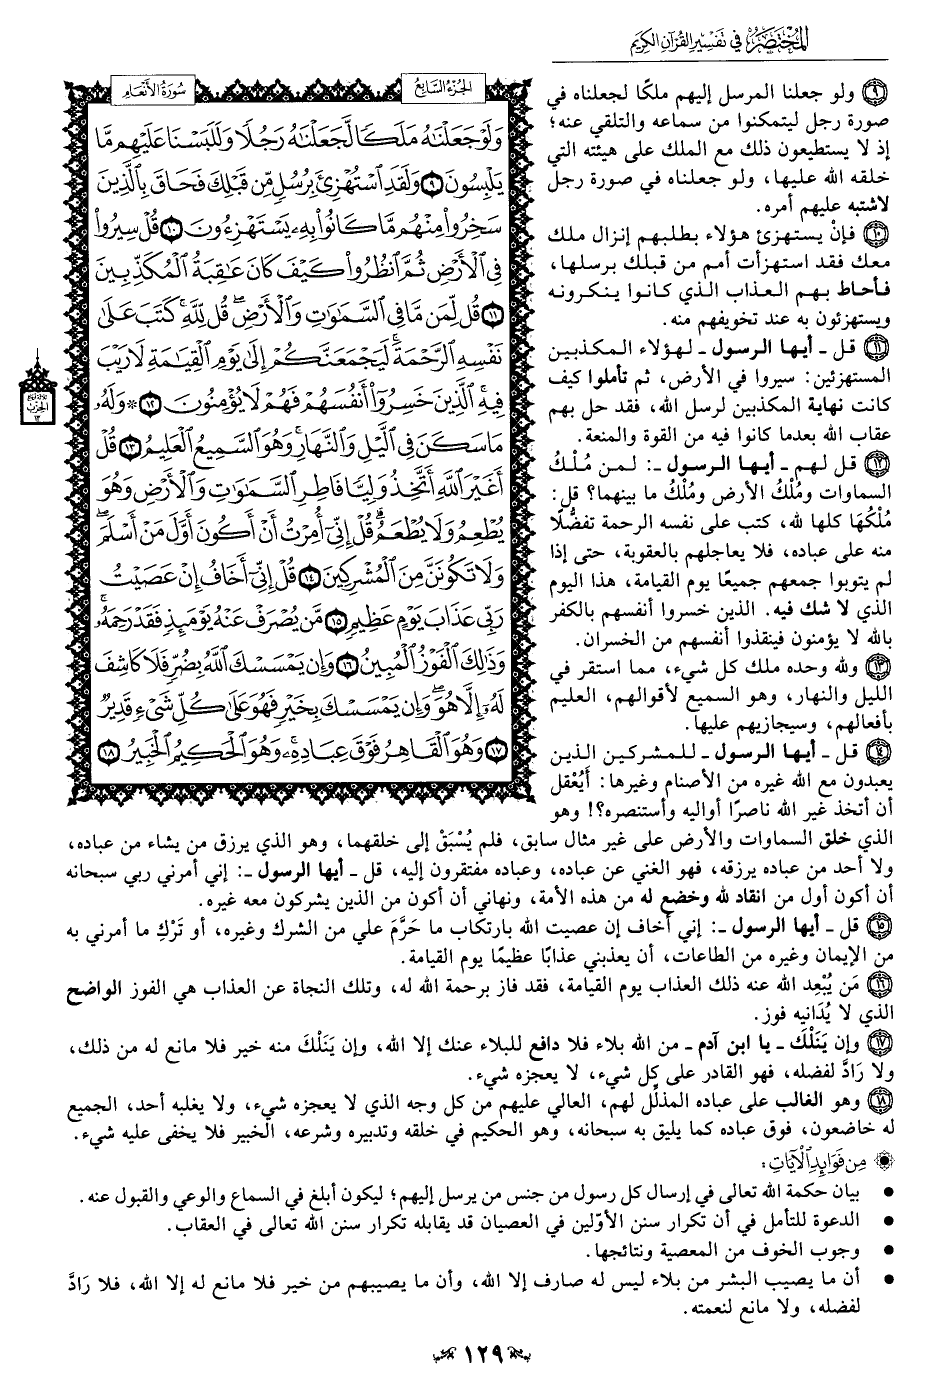 المختصر في تفسير القرآن الكريم
الجزء السابع
سورة الأنعام
وَلَوْ جَعَلْنَٰهُ مَلَكًا لَّجَعَلْنَٰهُ رَجُلًا وَلَلَبَسْنَا عَلَيْهِم مَّا
يَلْبِسُونَ ۝٩ وَلَقَدِ ٱسْتُهْزِئَ بِرُسُلٍ مِّن قَبْلِكَ فَحَاقَ بِٱلَّذِينَ
سَخِرُوا۟ مِنْهُم مَّا كَانُوا۟ بِهِۦ يَسْتَهْزِءُونَ ۝١٠ قُلْ سِيرُوا۟
فِى ٱلْأَرْضِ ثُمَّ ٱنظُرُوا۟ كَيْفَ كَانَ عَٰقِبَةُ ٱلْمُكَذِّبِينَ
۝١١ قُل لِّمَن مَّا فِى ٱلسَّمَٰوَٰتِ وَٱلْأَرْضِ ۖ قُل لِّلَّهِ ۚ كَتَبَ عَلَىٰ
نَفْسِهِ ٱلرَّحْمَةَ ۚ لَيَجْمَعَنَّكُمْ إِلَىٰ يَوْمِ ٱلْقِيَٰمَةِ لَا رَيْبَ
فِيهِ ۚ ٱلَّذِينَ خَسِرُوٓا۟ أَنفُسَهُمْ فَهُمْ لَا يُؤْمِنُونَ ۝١٢ ۞ وَلَهُۥ
مَا سَكَنَ فِى ٱلَّيْلِ وَٱلنَّهَارِ ۚ وَهُوَ ٱلسَّمِيعُ ٱلْعَلِيمُ ۝١٣ قُلْ
أَغَيْرَ ٱللَّهِ أَتَّخِذُ وَلِيًّا فَاطِرِ ٱلسَّمَٰوَٰتِ وَٱلْأَرْضِ وَهُوَ
يُطْعِمُ وَلَا يُطْعَمُ ۗ قُلْ إِنِّىٓ أُمِرْتُ أَنْ أَكُونَ أَوَّلَ مَنْ أَسْلَمَ ۖ
وَلَا تَكُونَنَّ مِنَ ٱلْمُشْرِكِينَ ۝١٤ قُلْ إِنِّىٓ أَخَافُ إِنْ عَصَيْتُ
رَبِّى عَذَابَ يَوْمٍ عَظِيمٍ ۝١٥ مَّن يُصْرَفْ عَنْهُ يَوْمَئِذٍ فَقَدْ رَحِمَهُۥ ۚ
وَذَٰلِكَ ٱلْفَوْزُ ٱلْمُبِينُ ۝١٦ وَإِن يَمْسَسْكَ ٱللَّهُ بِضُرٍّ فَلَا كَاشِفَ
لَهُۥٓ إِلَّا هُوَ ۖ وَإِن يَمْسَسْكَ بِخَيْرٍ فَهُوَ عَلَىٰ كُلِّ شَىْءٍ قَدِيرٌ
۝١٧ وَهُوَ ٱلْقَاهِرُ فَوْقَ عِبَادِهِۦ ۚ وَهُوَ ٱلْحَكِيمُ ٱلْخَبِيرُ ۝١٨
الحزب
١٣
٩ ولو جعلنا المرسل إليهم ملكًا لجعلناه في
صورة رجل ليتمكنوا من سماعه والتلقي عنه؛
إذ لا يستطيعون ذلك مع الملك على هيئته التي
خلقه الله عليها، ولو جعلناه في صورة رجل
لاشتبه عليهم أمره.
١٠ فإنْ يستهزئ هؤلاء بطلبهم إنزال ملك
معك فقد استهزأت أمم من قبلك برسلها،
فأحاط بهم العذاب الذي كانوا ينكرونه
ويستهزئون به عند تخويفهم منه.
١١ قل ـ أيها الرسول ـ لهؤلاء المكذبين
المستهزئين: سيروا في الأرض، ثم تأملوا كيف
كانت نهاية المكذبين لرسل الله، فقد حل بهم
عقاب الله بعدما كانوا فيه من القوة والمنعة.
١٢ قل لهم ـ أيها الرسول ـ: لمن مُلْكُ
السماوات ومُلْكُ الأرض ومُلْكُ ما بينهما؟ قل:
مُلْكُهَا كلها لله، كتب على نفسه الرحمة تفضُّلًا
منه على عباده، فلا يعاجلهم بالعقوبة، حتى إذا
لم يتوبوا جمعهم جميعًا يوم القيامة، هذا اليوم
الذي لا شك فيه. الذين خسروا أنفسهم بالكفر
بالله لا يؤمنون فينقذوا أنفسهم من الخسران.
١٣ ولله وحده ملك كل شيء، مما استقر في
الليل والنهار، وهو السميع لأقوالهم، العليم
بأفعالهم، وسيجازيهم عليها.
١٤ قل ـ أيها الرسول ـ للمشركين الذين
يعبدون مع الله غيره من الأصنام وغيرها: أَيُعْقل
أن أتخذ غير الله ناصرًا أواليه وأستنصره؟! وهو
الذي خلق السماوات والأرض على غير مثال سابق، فلم يُسْبَقْ إلى خلقهما، وهو الذي يرزق من يشاء من عباده،
ولا أحد من عباده يرزقه، فهو الغني عن عباده، وعباده مفتقرون إليه، قل ـ أيها الرسول ـ: إني أمرني ربي سبحانه
أن أكون أول من انقاد لله وخضع له من هذه الأمة، ونهاني أن أكون من الذين يشركون معه غيره.
١٥ قل ـ أيها الرسول ـ: إني أخاف إن عصيت الله بارتكاب ما حَرَّمَ علي من الشرك وغيره، أو تَرْكِ ما أمرني به
من الإيمان وغيره من الطاعات، أن يعذبني عذابًا عظيمًا يوم القيامة.
١٦ مَن يُبْعِد الله عنه ذلك العذاب يوم القيامة، فقد فاز برحمة الله له، وتلك النجاة عن العذاب هي الفوز الواضح
الذي لا يُدَانِيه فوز.
١٧ وإن يَنَلْكَ ـ يا ابن آدم ـ من الله بلاء فلا دافع للبلاء عنك إلا الله، وإن يَنَلْكَ منه خير فلا مانع له من ذلك،
ولا رَادَّ لفضله، فهو القادر على كل شيء، لا يعجزه شيء.
١٨ وهو الغالب على عباده المذلِّل لهم، العالي عليهم من كل وجه الذي لا يعجزه شيء، ولا يغلبه أحد، الجميع
له خاضعون، فوق عباده كما يليق به سبحانه، وهو الحكيم في خلقه وتدبيره وشرعه، الخبير فلا يخفى عليه شيء.
من فوائد الآيات:
• بيان حكمة الله تعالى في إرسال كل رسول من جنس من يرسل إليهم؛ ليكون أبلغ في السماع والوعي والقبول عنه.
• الدعوة للتأمل في أن تكرار سنن الأوّلين في العصيان قد يقابله تكرار سنن الله تعالى في العقاب.
• وجوب الخوف من المعصية ونتائجها.
• أن ما يصيب البشر من بلاء ليس له صارف إلا الله، وأن ما يصيبهم من خير فلا مانع له إلا الله، فلا رَادَّ
لفضله، ولا مانع لنعمته.
١٢٩